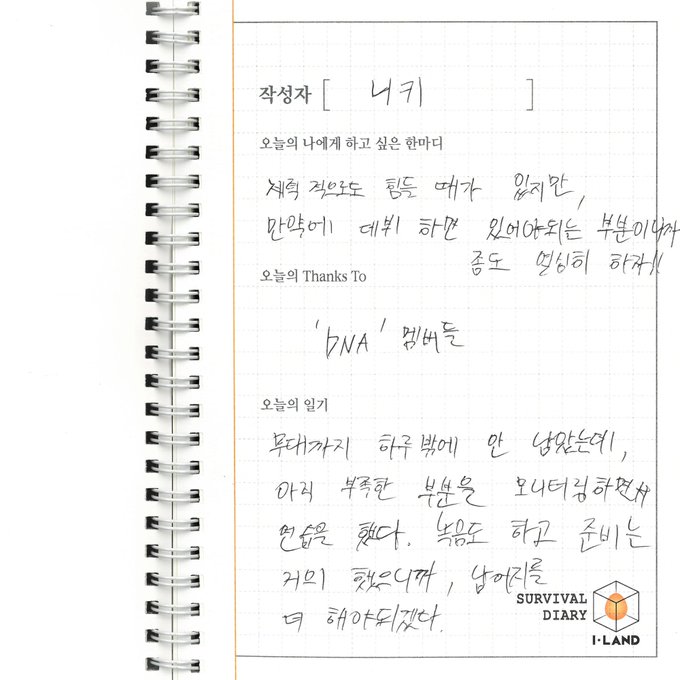 작성자 [ 니키 ]
오늘의 나에게 하고 싶은 한마디
체력 적으로도 힘들 때가 있지만,
만약에 데뷔 하면 있어야되는 부분이니까
좀도 열심히 하자!!
오늘의 Thanks To
'DNA' 멤버들
오늘의 일기
무대까지 하루밖에 안 남았는데,
아직 부족한 부분을 모니터링하면서
연습을 했다. 녹음도 하고 준비는
거의 했으니까, 남어지를
더 해야되겠다.
SURVIVAL
DIARY
I·LAND